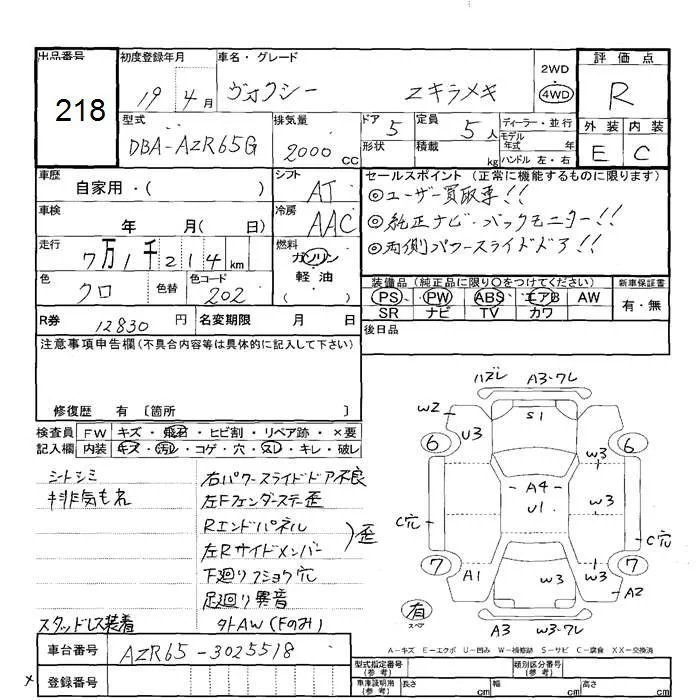 出品番号 初度登録年月 車名・グレード 2WD 評価点
218 19 4月 ヴォクシー Zキラメキ 4WD R
型式 排気量 ドア 5 定員 5人 ディーラー・並行 外装 内装
DBA-AZR65G 2000CC 形状 積載 kg モデル年式 年 E C
ハンドル 左・右
車歴 自家用・( ) シフト AT セールスポイント (正常に機能するものに限ります)
◎ユーザー買取車!!
車検 年 月( 日) 冷房 AAC ◎純正ナビ・バックモニター!!
走行 7万1千214km 燃料 ガソリン 軽油 ◎両側パワースライドドア!!
色 クロ 色替 色コード 202 装備品 (純正品に限り○をつけてください) 新車保証書
PS PW ABS エアB AW 有・無
SR ナビ TV カワ
R券 12830円 名変期限 月 日 後日品
注意事項申告欄(不具合内容等は具体的に記入して下さい)
修復歴 有 〔箇所 〕
検査員 FW キズ・飛石・ヒビ割・リペア跡・×要
記入欄 内装 キズ・汚レ・コゲ・穴・スレ・キレ・破レ
シートシミ 右パワースライドドア不良
排気もれ 左Fフェンダーステー歪
Rエンドパネル
左Rサイドメンバー 歪
下廻りフショク穴
足廻り異音
スタッドレス装着 外AW(Fのみ)
ハズレ A3・ワレ
W2 S1
U3
6 6
W3 W3
A4
U1 W3
C穴 C穴
7 7
A1 W3 W3 A2
有
スペア
A3 W3・ワレ
A-キズ E-エクボ U-凹み W-補修跡 S-サビ C-腐食 XX-交換済
車台番号 AZR65-3025518 型式指定番号(参考) 類別区分番号(参考)
× 登録番号 車庫証明用(参考) 長さ cm 幅 cm 高さ cm